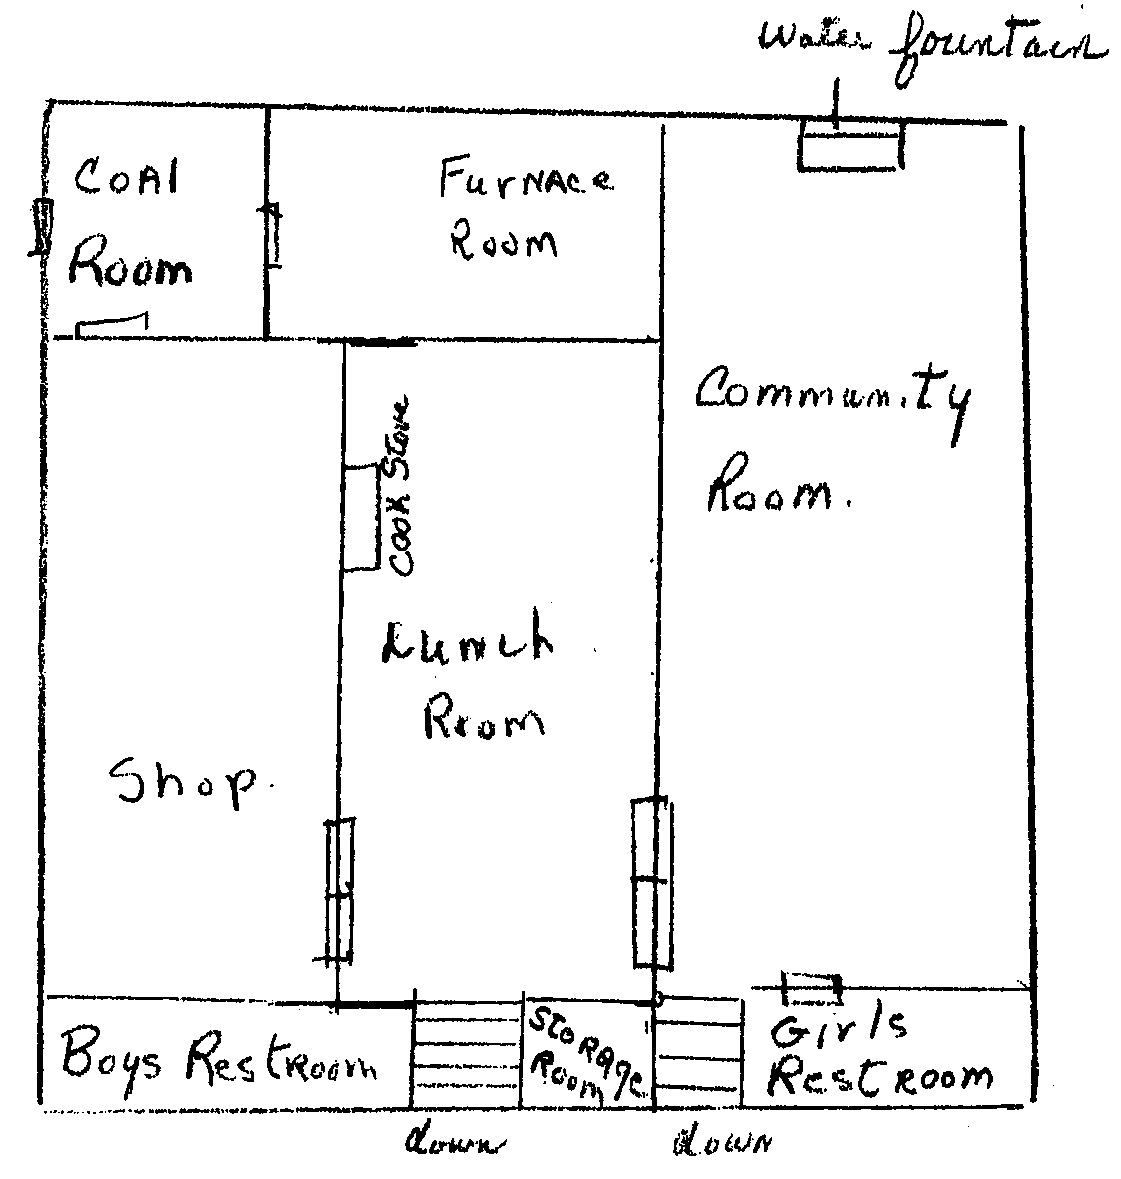 Water fountain
Coal
Room
Furnace
Room
Community
Room.
Cook Stove
Lunch
Room
Shop.
Boys Restroom
Storage
Room
Girls
Restroom
down
down